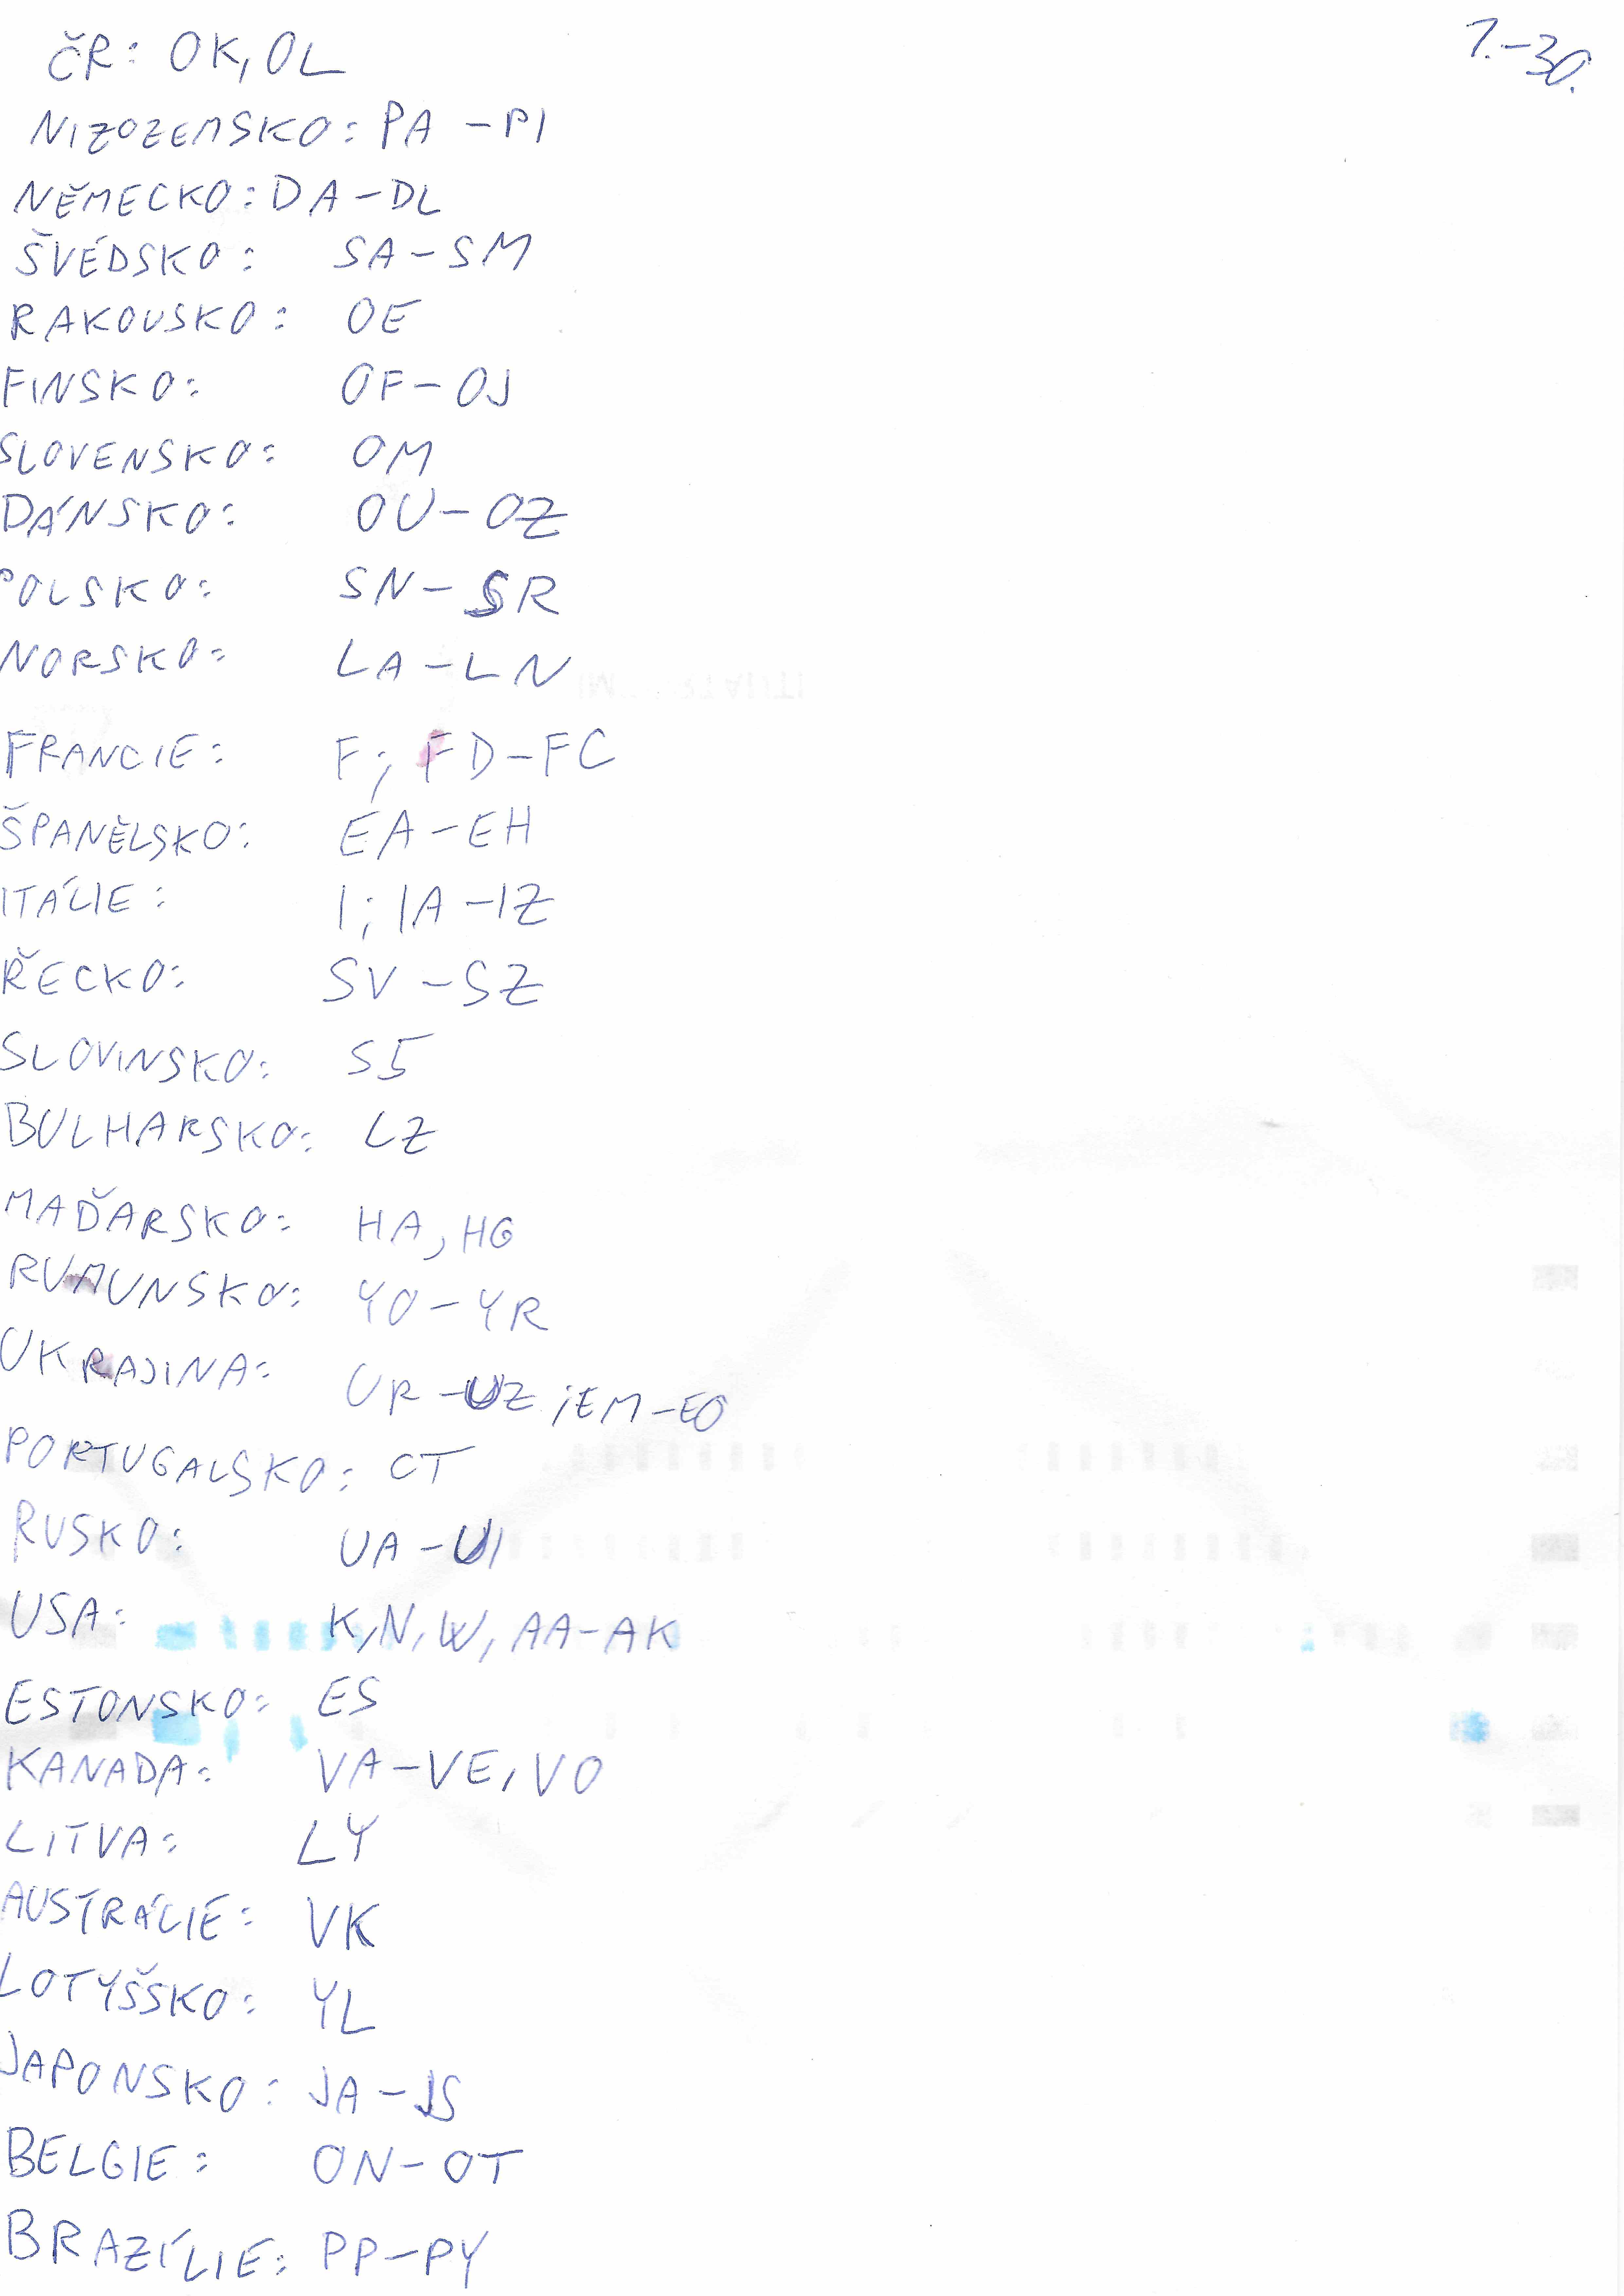 ČR: OK, OL
1.-30.
NIZOZEMSKO: PA - PI
NĚMECKO: DA - DL
ŠVÉDSKO: SA - SM
RAKOUSKO: OE
FINSKO: OF - OJ
SLOVENSKO: OM
DÁNSKO: OU - OZ
POLSKO: SN - SR
NORSKO: LA - LN
FRANCIE: F; FD - FC
ŠPANĚLSKO: EA - EH
ITÁLIE: I; IA - IZ
ŘECKO: SV - SZ
SLOVINSKO: S5
BULHARSKO: LZ
MAĎARSKO: HA, HG
RUMUNSKO: YO - YR
UKRAJINA: UR - UZ ; EM - EO
PORTUGALSKO: CT
RUSKO: UA - UI
USA: K, N, W, AA - AK
ESTONSKO: ES
KANADA: VA - VE, VO
LITVA: LY
AUSTRÁLIE: VK
LOTYŠSKO: YL
JAPONSKO: JA - JS
BELGIE: ON - OT
BRAZÍLIE: PP - PY